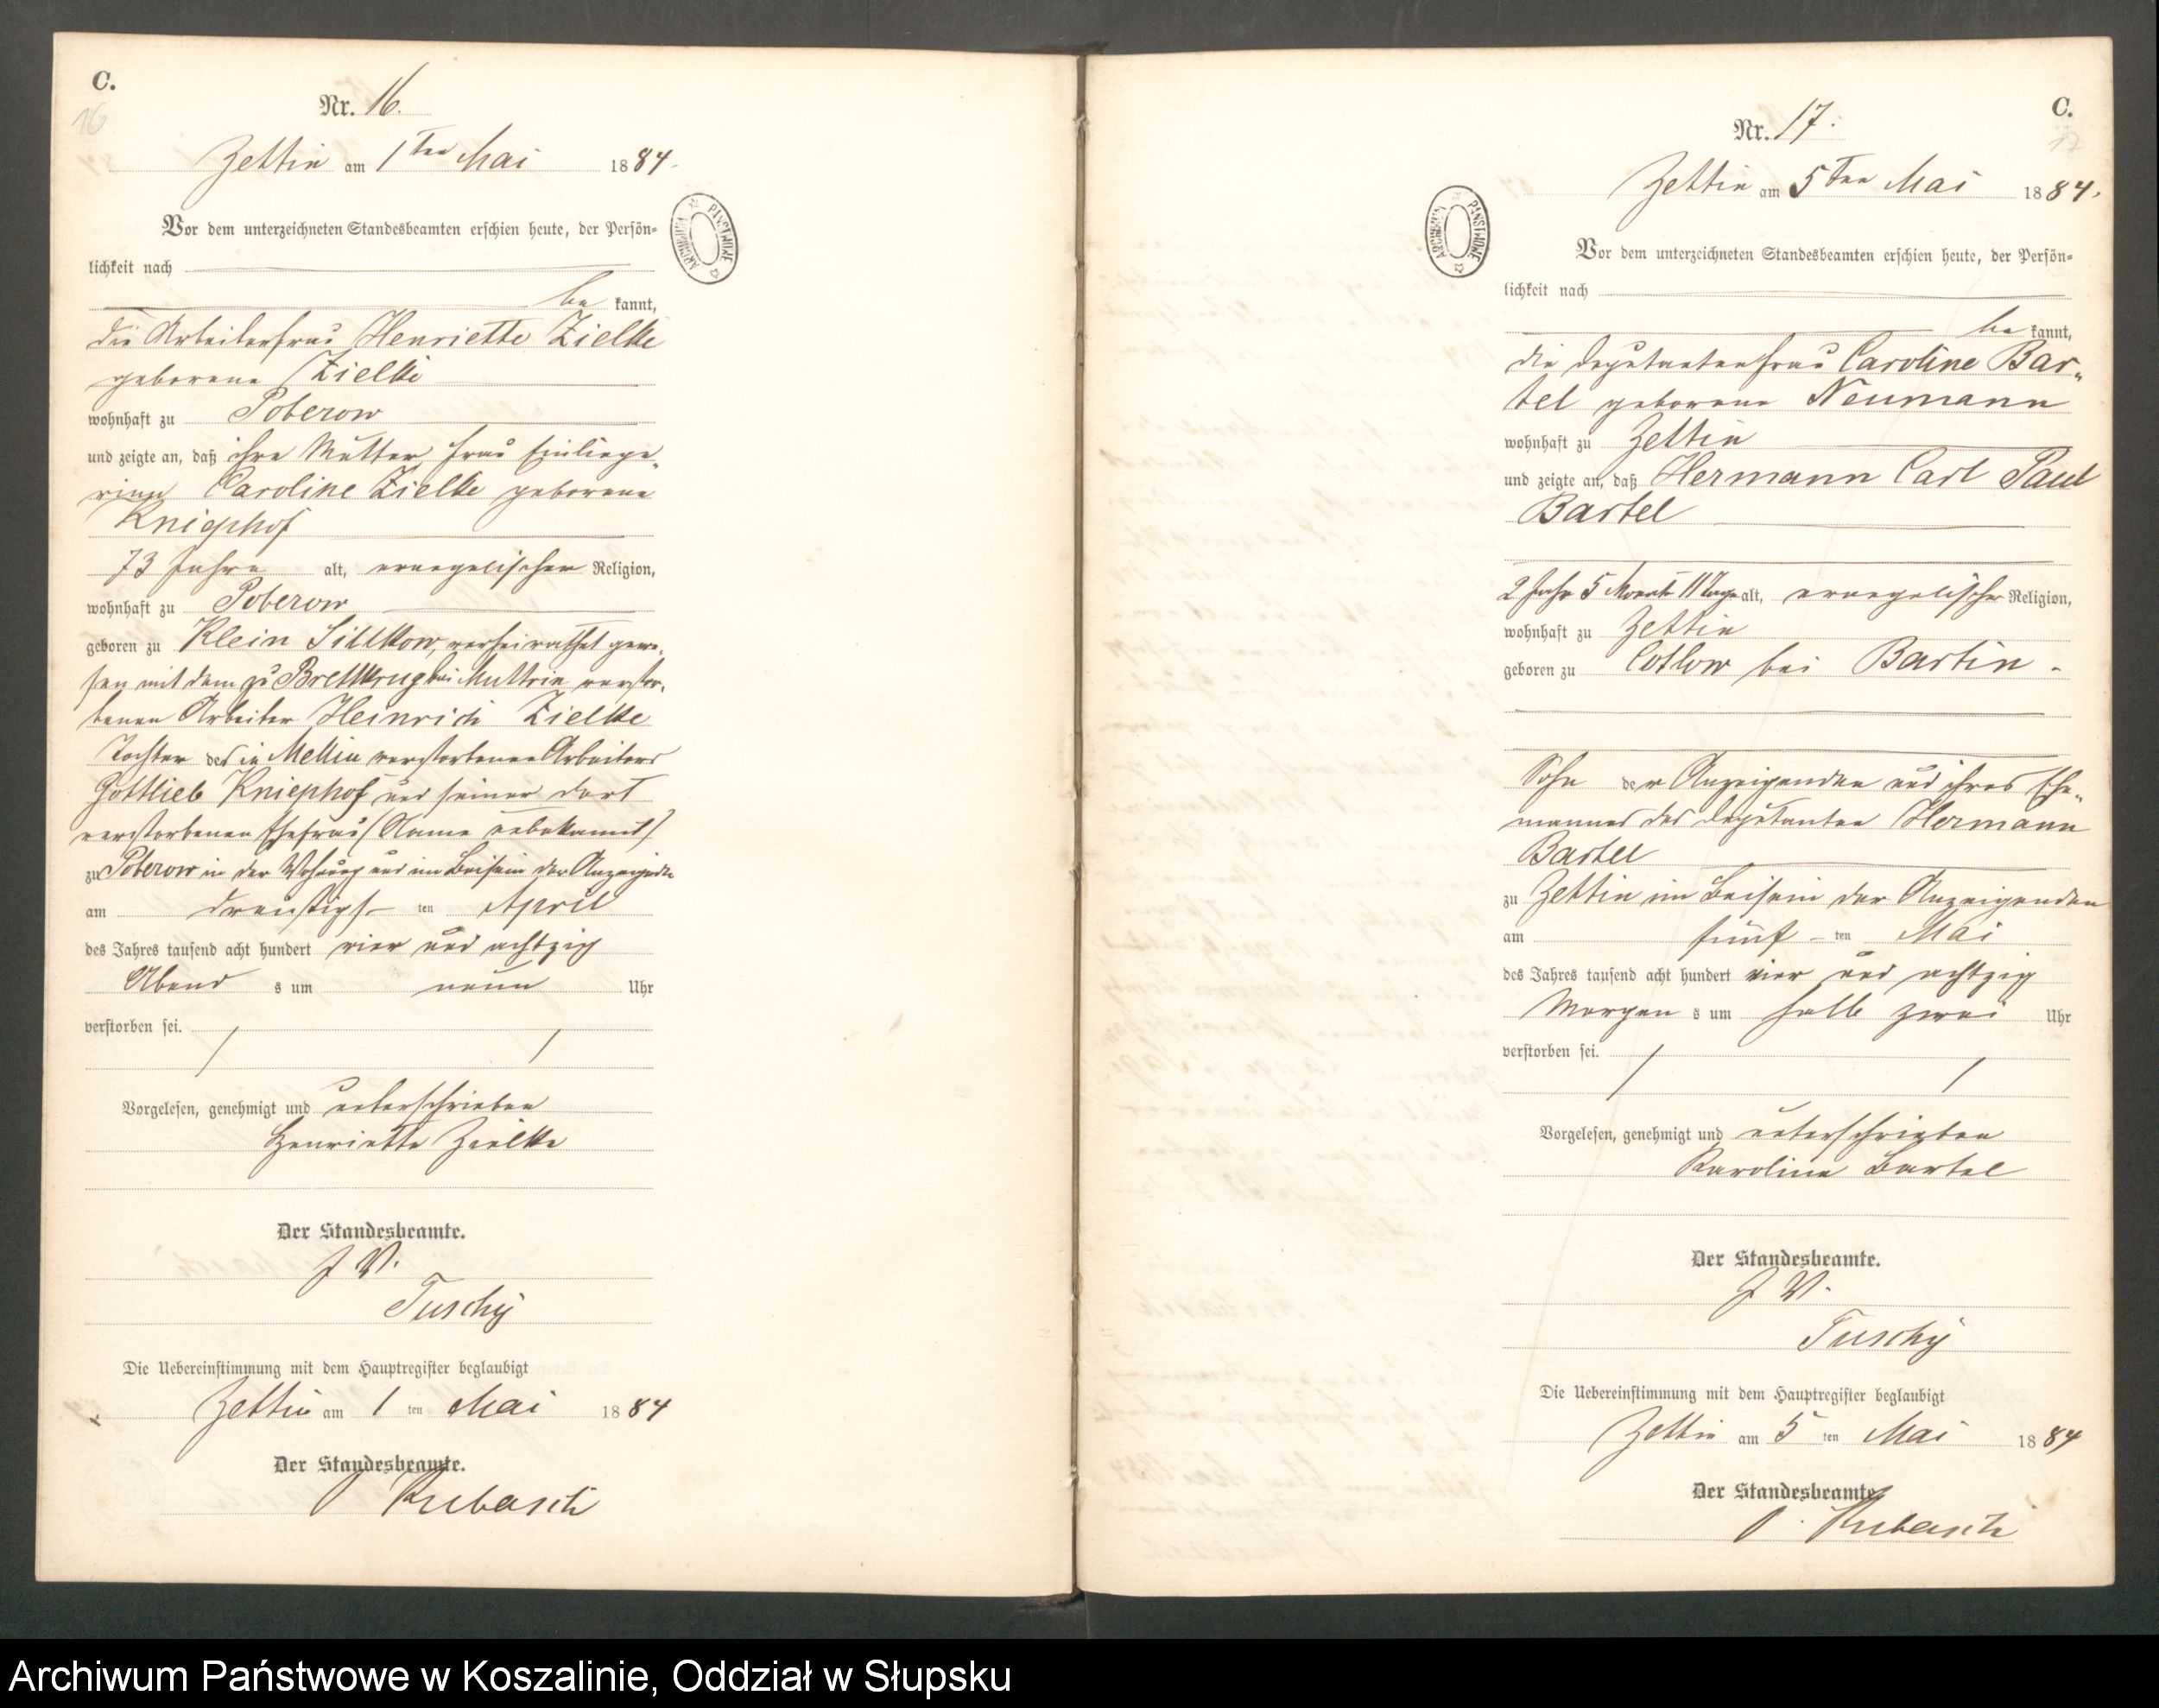 C.
16
Nr. 16.
Zettin am 1ten Mai 1884.
Vor dem unterzeichneten Standesbeamten erschien heute, der Persön-
lichkeit nach
be kannt,
die Arbeiterfrau Henriette Zielke
geborene Zielke
wohnhaft zu Poberow
und zeigte an, daß ihre Mutter, Frau Einliege-
rinn Caroline Zielke geborene
Kniephof
73 Jahre alt, evangelischer Religion,
wohnhaft zu Poberow
geboren zu Klein Silkow, verheirathet gewe-
sen mit dem zu Brettkrug bei Muttrin verstor-
benen Arbeiter Heinrich Zielke
Tochter des in Mellin verstorbenen Arbeiters
Gottlieb Kniephof und seiner dort
verstorbenen Ehefrau (Name unbekannt)
zu Poberow in der Wohnung und im Beisein der Anzeigenden
am dreißigs- ten April
des Jahres tausend acht hundert vier und achtzig
Abend s um neun Uhr
verstorben sei.
Vorgelesen, genehmigt und unterschrieben
Henriette Zielke
Der Standesbeamte.
J. V.
Tuschÿ
Die Uebereinstimmung mit dem Hauptregister beglaubigt
Zettin am 1 ten Mai 1884
Der Standesbeamte.
Kubasch
ARCHIWUM PAŃSTWOWE
C.
17
Nr. 17.
Zettin am 5ten Mai 1884.
Vor dem unterzeichneten Standesbeamten erschien heute, der Persön-
lichkeit nach
be kannt,
die Deputantenfrau Caroline Bar-
tel geborene Neumann
wohnhaft zu Zettin
und zeigte an, daß Hermann Carl Paul
Bartel
2 Jahr 5 Monate 11 Tage alt, evangelischer Religion,
wohnhaft zu Zettin
geboren zu Cotlow bei Bartin -
Sohn der Anzeigenden und ihres Ehe-
mannes des Deputanten Hermann
Bartel
zu Zettin im Beisein der Anzeigenden
am fünf- ten Mai
des Jahres tausend acht hundert vier und achtzig
Morgen s um halb zwei Uhr
verstorben sei.
Vorgelesen, genehmigt und unterschrieben
Karoline Bartel
Der Standesbeamte.
J. V.
Tuschÿ
Die Uebereinstimmung mit dem Hauptregister beglaubigt
Zettin am 5 ten Mai 1884
Der Standesbeamte.
Kubasch
ARCHIWUM PAŃSTWOWE
Archiwum Państwowe w Koszalinie, Oddział w Słupsku